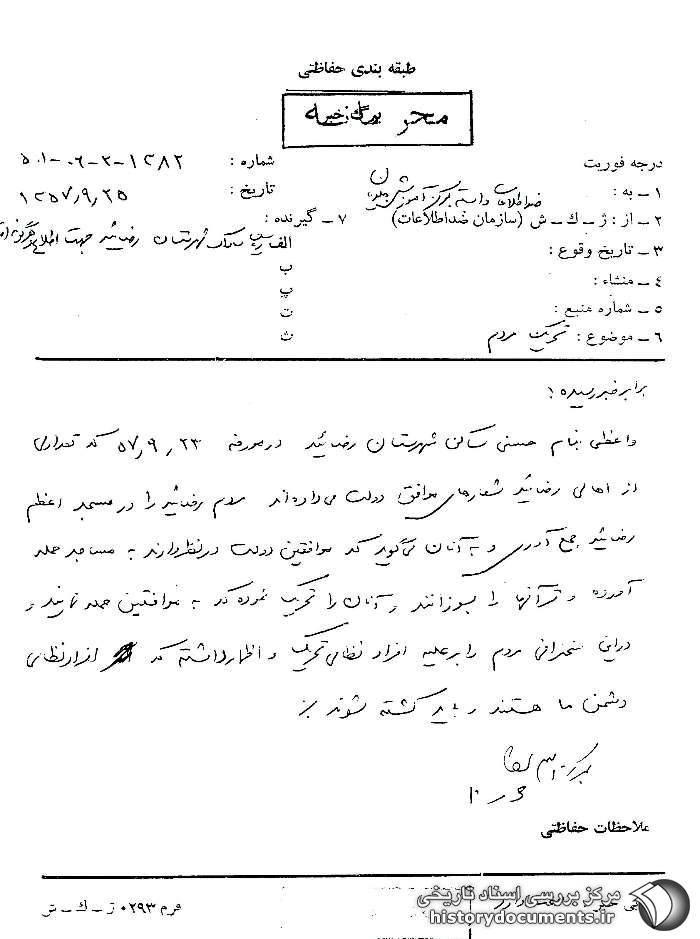 طبقه بندی حفاظتی
برگ خبر
درجه فوریت
شماره : ۵۰۱-۰۶-۲-۱۲۸۲
۱ ـ به : ضد اطلاعات
تاریخ : ۱۳۵۷٫۹٫۲۵
۲ ـ از : ژ ـ ك ـ ش (سازمان ضداطلاعات)
۷ ـ گیرنده :
الف ساواک شهرستان رضائیه جهت اطلاع
۳ ـ تاریخ وقوع :
ب
۴ ـ منشاء :
پ
۵ ـ شماره منبع :
ت
۶ ـ موضوع : تحریک مردم
ث
برابر خبر رسیده :
واعظی بنام حسنی ساکن شهرستان رضائیه در مورخه ۵۷٫۹٫۲۳ که تعدادی
از اهالی رضائیه شعارهای موافق دولت می‌داده‌اند مردم رضائیه را در مسجد اعظم
رضائیه جمع آوری و به آنان می‌گوید که موافقین دولت در نظر دارند به مساجد حمله
آورده و قرآنها را بسوزانند و آنان را تحریک نموده که به موافقین حمله نمایند و
در این سخنرانی مردم را بر علیه افراد نظامی تحریک و اظهار داشته که افراد نظامی
دشمن ما هستند و باید کشته شوند
ملاحظات حفاظتی
فرم ۰۲۹۳ ژ ـ ك ـ ش
مرکز بررسی اسناد تاریخی
historydocuments.ir